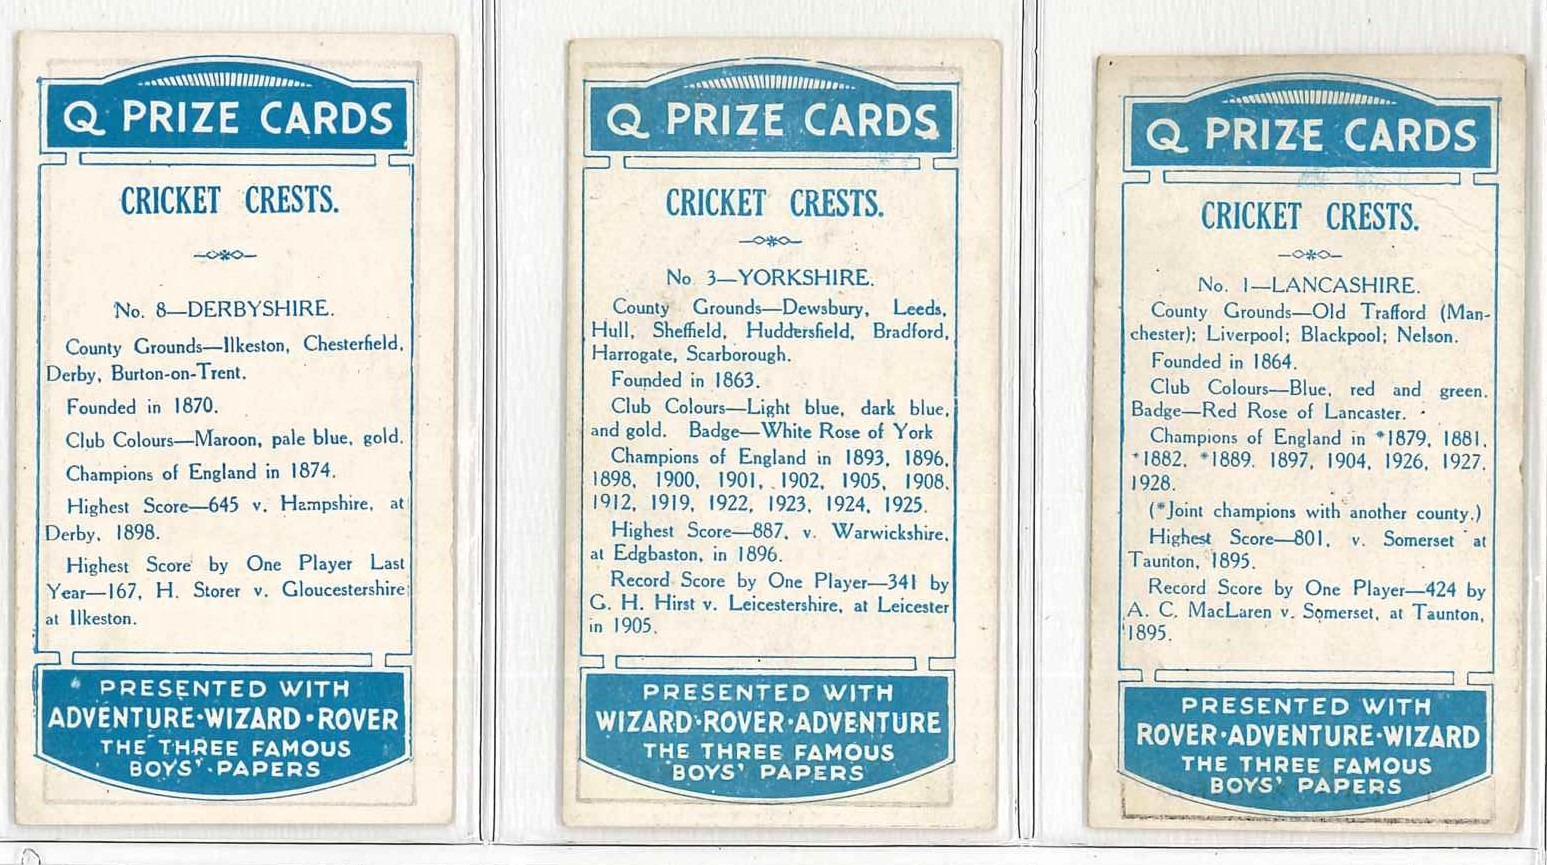 Q PRIZE CARDS
CRICKET CRESTS.
No. 8—DERBYSHIRE.
County Grounds—Ilkeston, Chesterfield,
Derby, Burton-on-Trent.
Founded in 1870.
Club Colours—Maroon, pale blue, gold.
Champions of England in 1874.
Highest Score—645 v. Hampshire, at
Derby, 1898.
Highest Score by One Player Last
Year—167, H. Storer v. Gloucestershire
at Ilkeston.
PRESENTED WITH
ADVENTURE·WIZARD·ROVER
THE THREE FAMOUS
BOYS' PAPERS
Q PRIZE CARDS
CRICKET CRESTS.
No 3—YORKSHIRE.
County Grounds—Dewsbury, Leeds,
Hull, Sheffield, Huddersfield, Bradford,
Harrogate, Scarborough.
Founded in 1863.
Club Colours—Light blue, dark blue,
and gold. Badge—White Rose of York
Champions of England in 1893, 1896,
1898, 1900, 1901, 1902, 1905, 1908,
1912, 1919, 1922, 1923, 1924, 1925.
Highest Score—887, v. Warwickshire,
at Edgbaston, in 1896.
Record Score by One Player—341 by
G. H. Hirst v. Leicestershire, at Leicester
in 1905.
PRESENTED WITH
WIZARD·ROVER·ADVENTURE
THE THREE FAMOUS
BOYS' PAPERS
Q PRIZE CARDS
CRICKET CRESTS.
No. 1—LANCASHIRE.
County Grounds—Old Trafford (Man-
chester); Liverpool; Blackpool; Nelson.
Founded in 1864.
Club Colours—Blue, red and green.
Badge—Red Rose of Lancaster.
Champions of England in *1879, 1881,
*1882, *1889, 1897, 1904, 1926, 1927,
1928.
(*Joint champions with another county.)
Highest Score—801, v. Somerset at
Taunton, 1895.
Record Score by One Player—424 by
A. C. MacLaren v. Somerset, at Taunton,
1895.
PRESENTED WITH
ROVER·ADVENTURE·WIZARD
THE THREE FAMOUS
BOYS' PAPERS